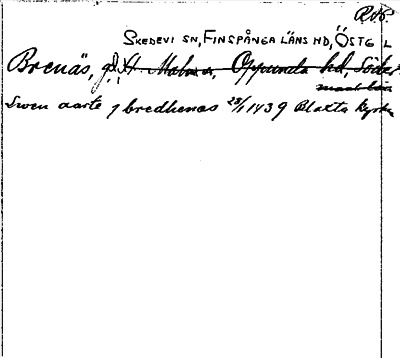 RAp.
SKEDEVI SN, FINSPÅNGA LÄNS HD, ÖSTG L
Brenäs, gd, St Malms, Oppunda hd, Söder
manl. län
Swen aarte j bredhenæs 23/1 1439 Blatta kyrka